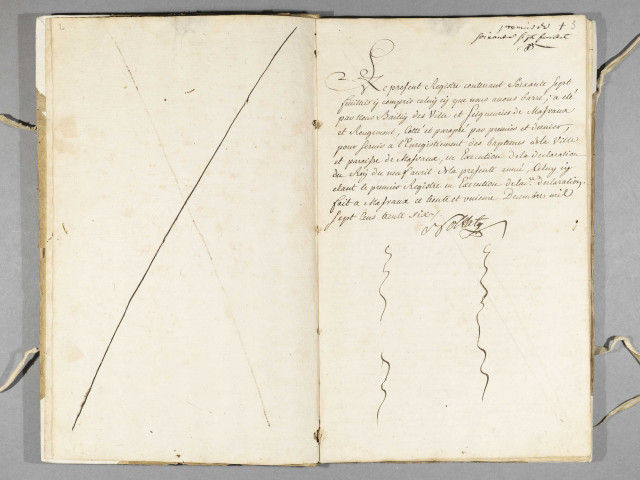 premier de
soixante sept feuillets
Le present Registre contenant Soixante Sept
feuillets y compris celuy cy que nous avons barré, a été
par Nous Bailly des Ville et Seigneuries de Masvaux
et Rougemont, Cotté et paraphé par premier et dernier,
pour servir a l'Enregistrement des baptemes de la Ville
et paroisse de Masvaux, en Execution de la declaration
du Roy du neuf avril de la presente année, Celuy cy
etant le premier Registre en Execution de lad. declaration,
fait a Masvaux ce trente et unieme Decembre mil
Sept Cens trente six